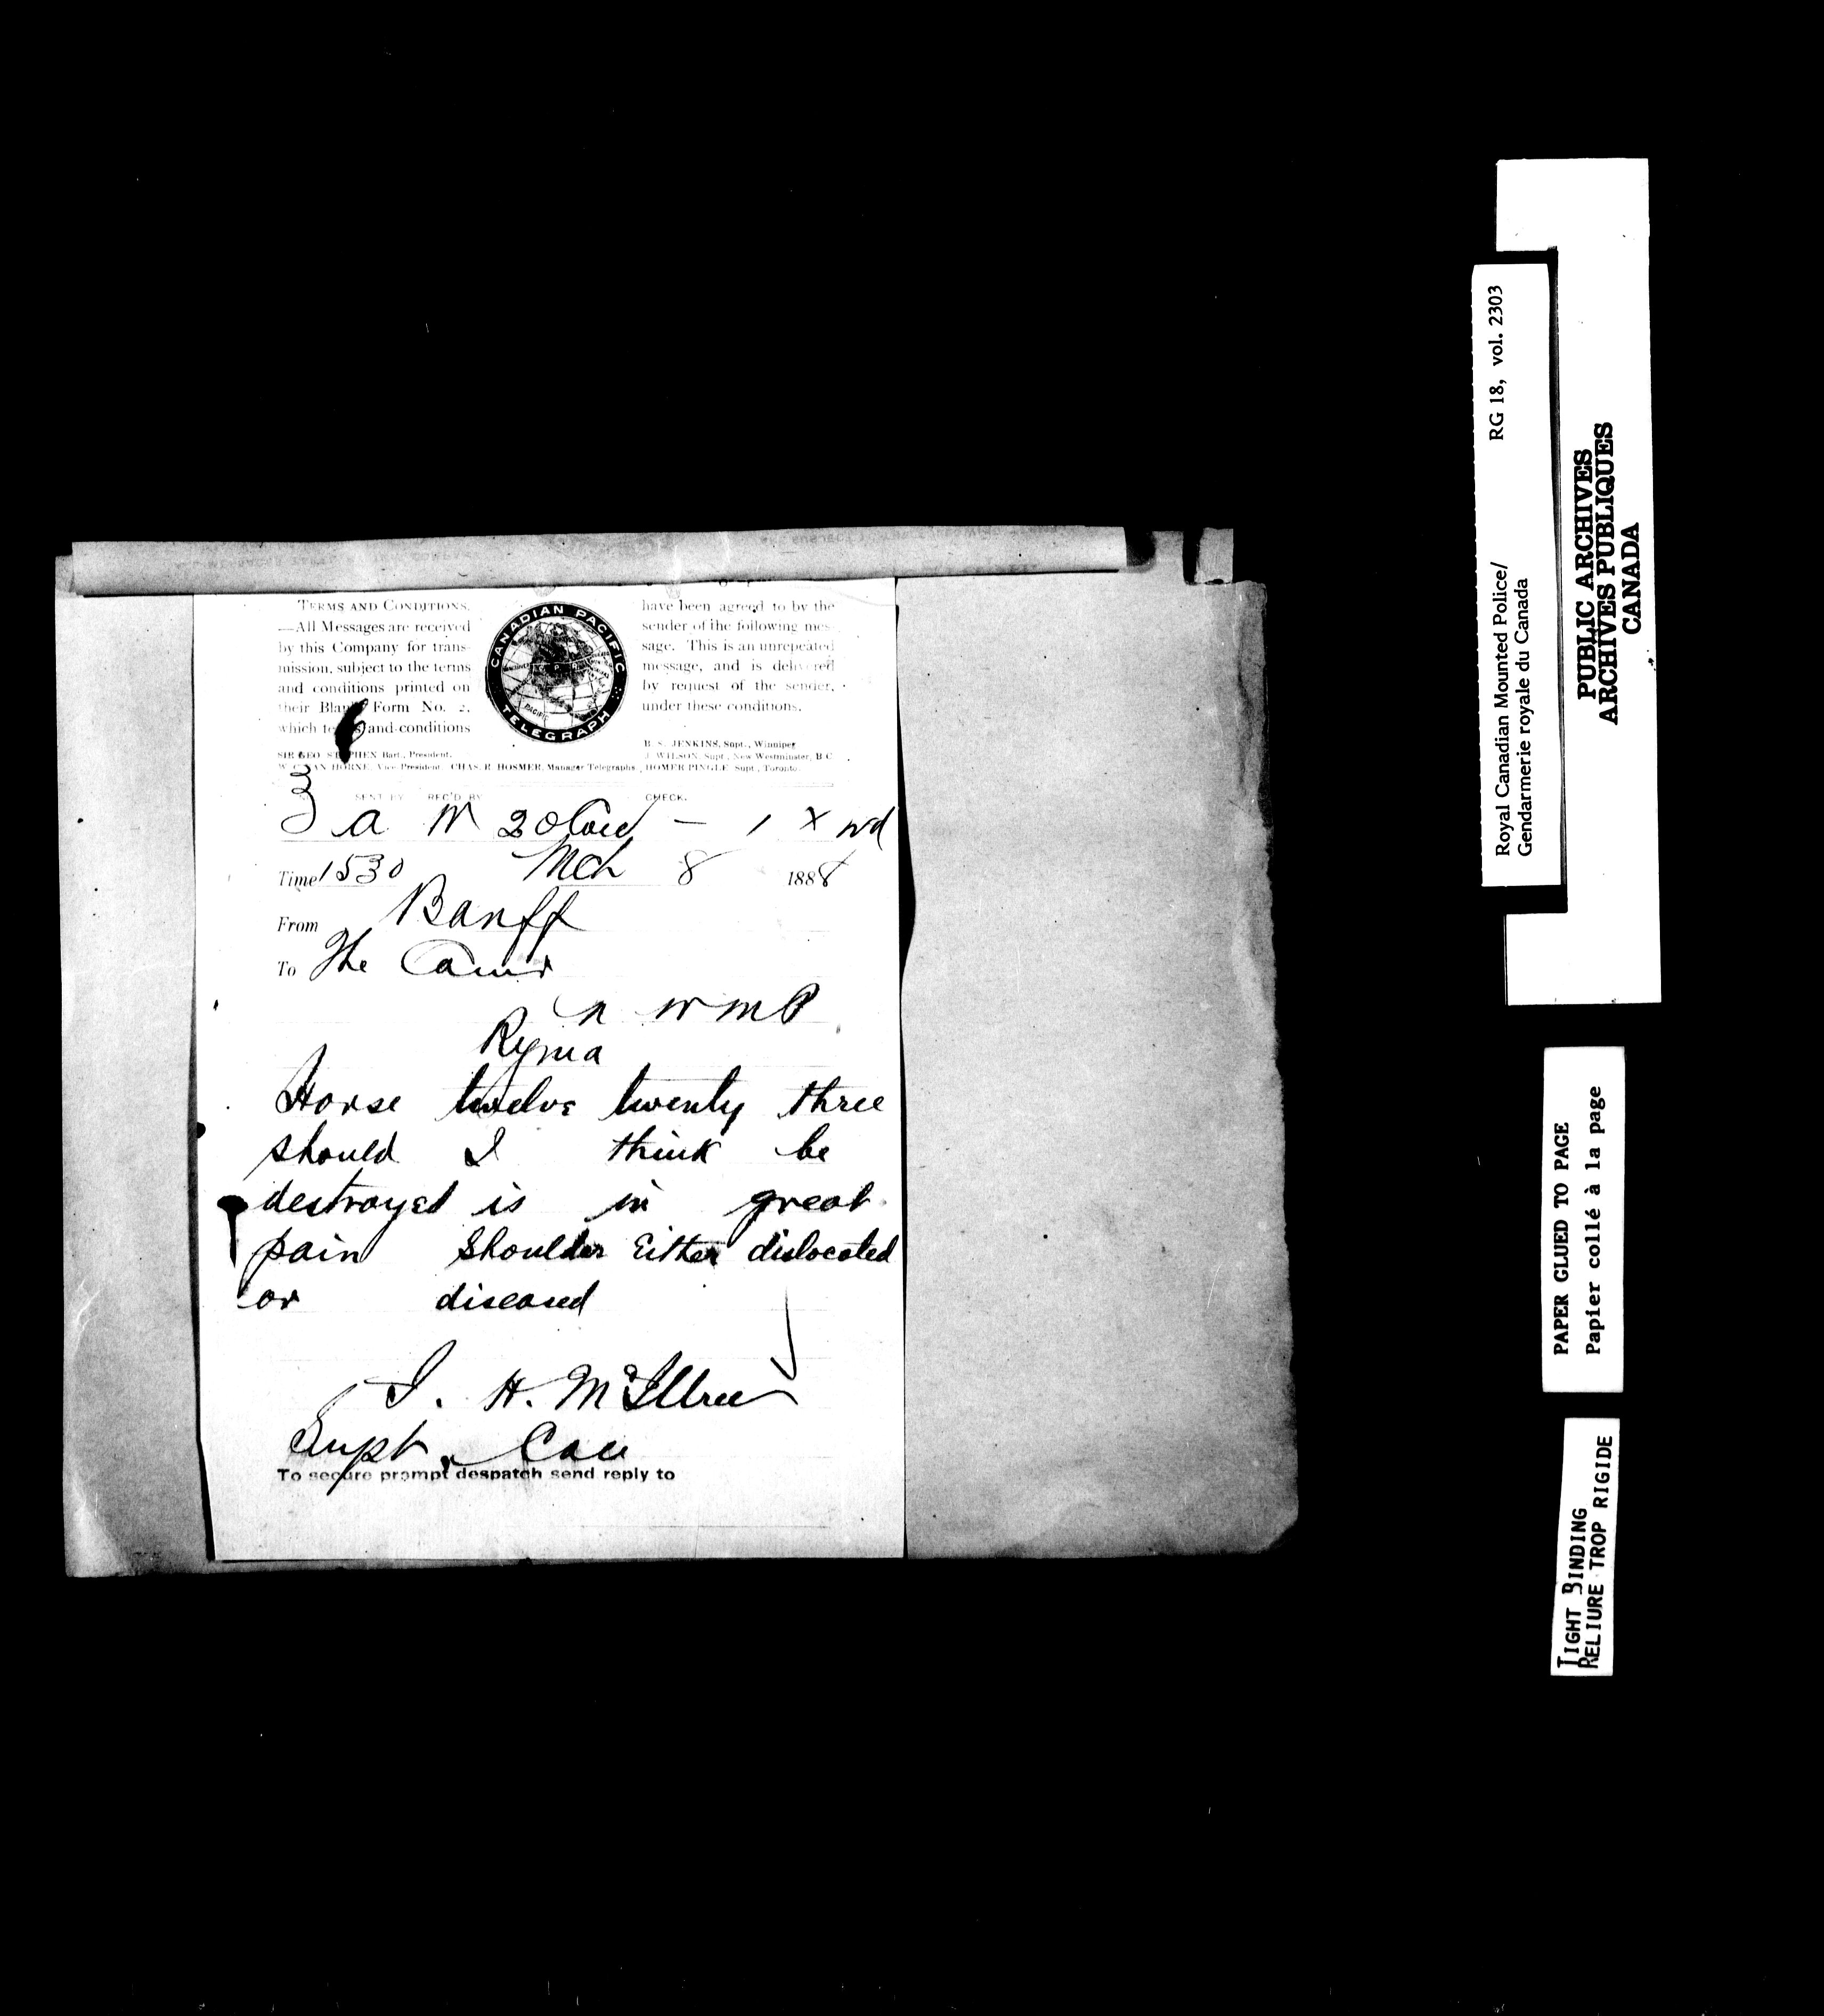 TERMS AND CONDITIONS.
—All Messages are received
by this Company for trans-
mission, subject to the terms
and conditions printed on
their Blank Form No. 2,
which te and conditions
CANADIAN PACIFIC
TELEGRAPH
have been agreed to by the
sender of the following mes-
sage. This is an unrepeated
message, and is delivered
by request of the sender,
under these conditions.
SIR GEO. STEPHEN Bart., President.
W. C. VAN HORNE, Vice-President. CHAS. R. HOSMER, Manager Telegraphs.
B. S. JENKINS, Supt., Winnipeg
J. WILSON, Supt., New Westminster, B.C.
HOMER PINGLE, Supt., Toronto.
SENT BY REC'D BY CHECK.
a 20
Time 1530 Mch 8 1888
From Banff
To The Comr
N W M P
Regina
Horse twelve twenty three
should I think be
destroyed is in great
pain Shoulder Either dislocated
or diseased
J. H. McIllree
Supt. Com
To secure prompt despatch send reply to
Royal Canadian Mounted Police/ RG 18, vol. 2303
Gendarmerie royale du Canada
PUBLIC ARCHIVES
ARCHIVES PUBLIQUES
CANADA
PAPER GLUED TO PAGE
Papier collé à la page
TIGHT BINDING
RELIURE TROP RIGIDE